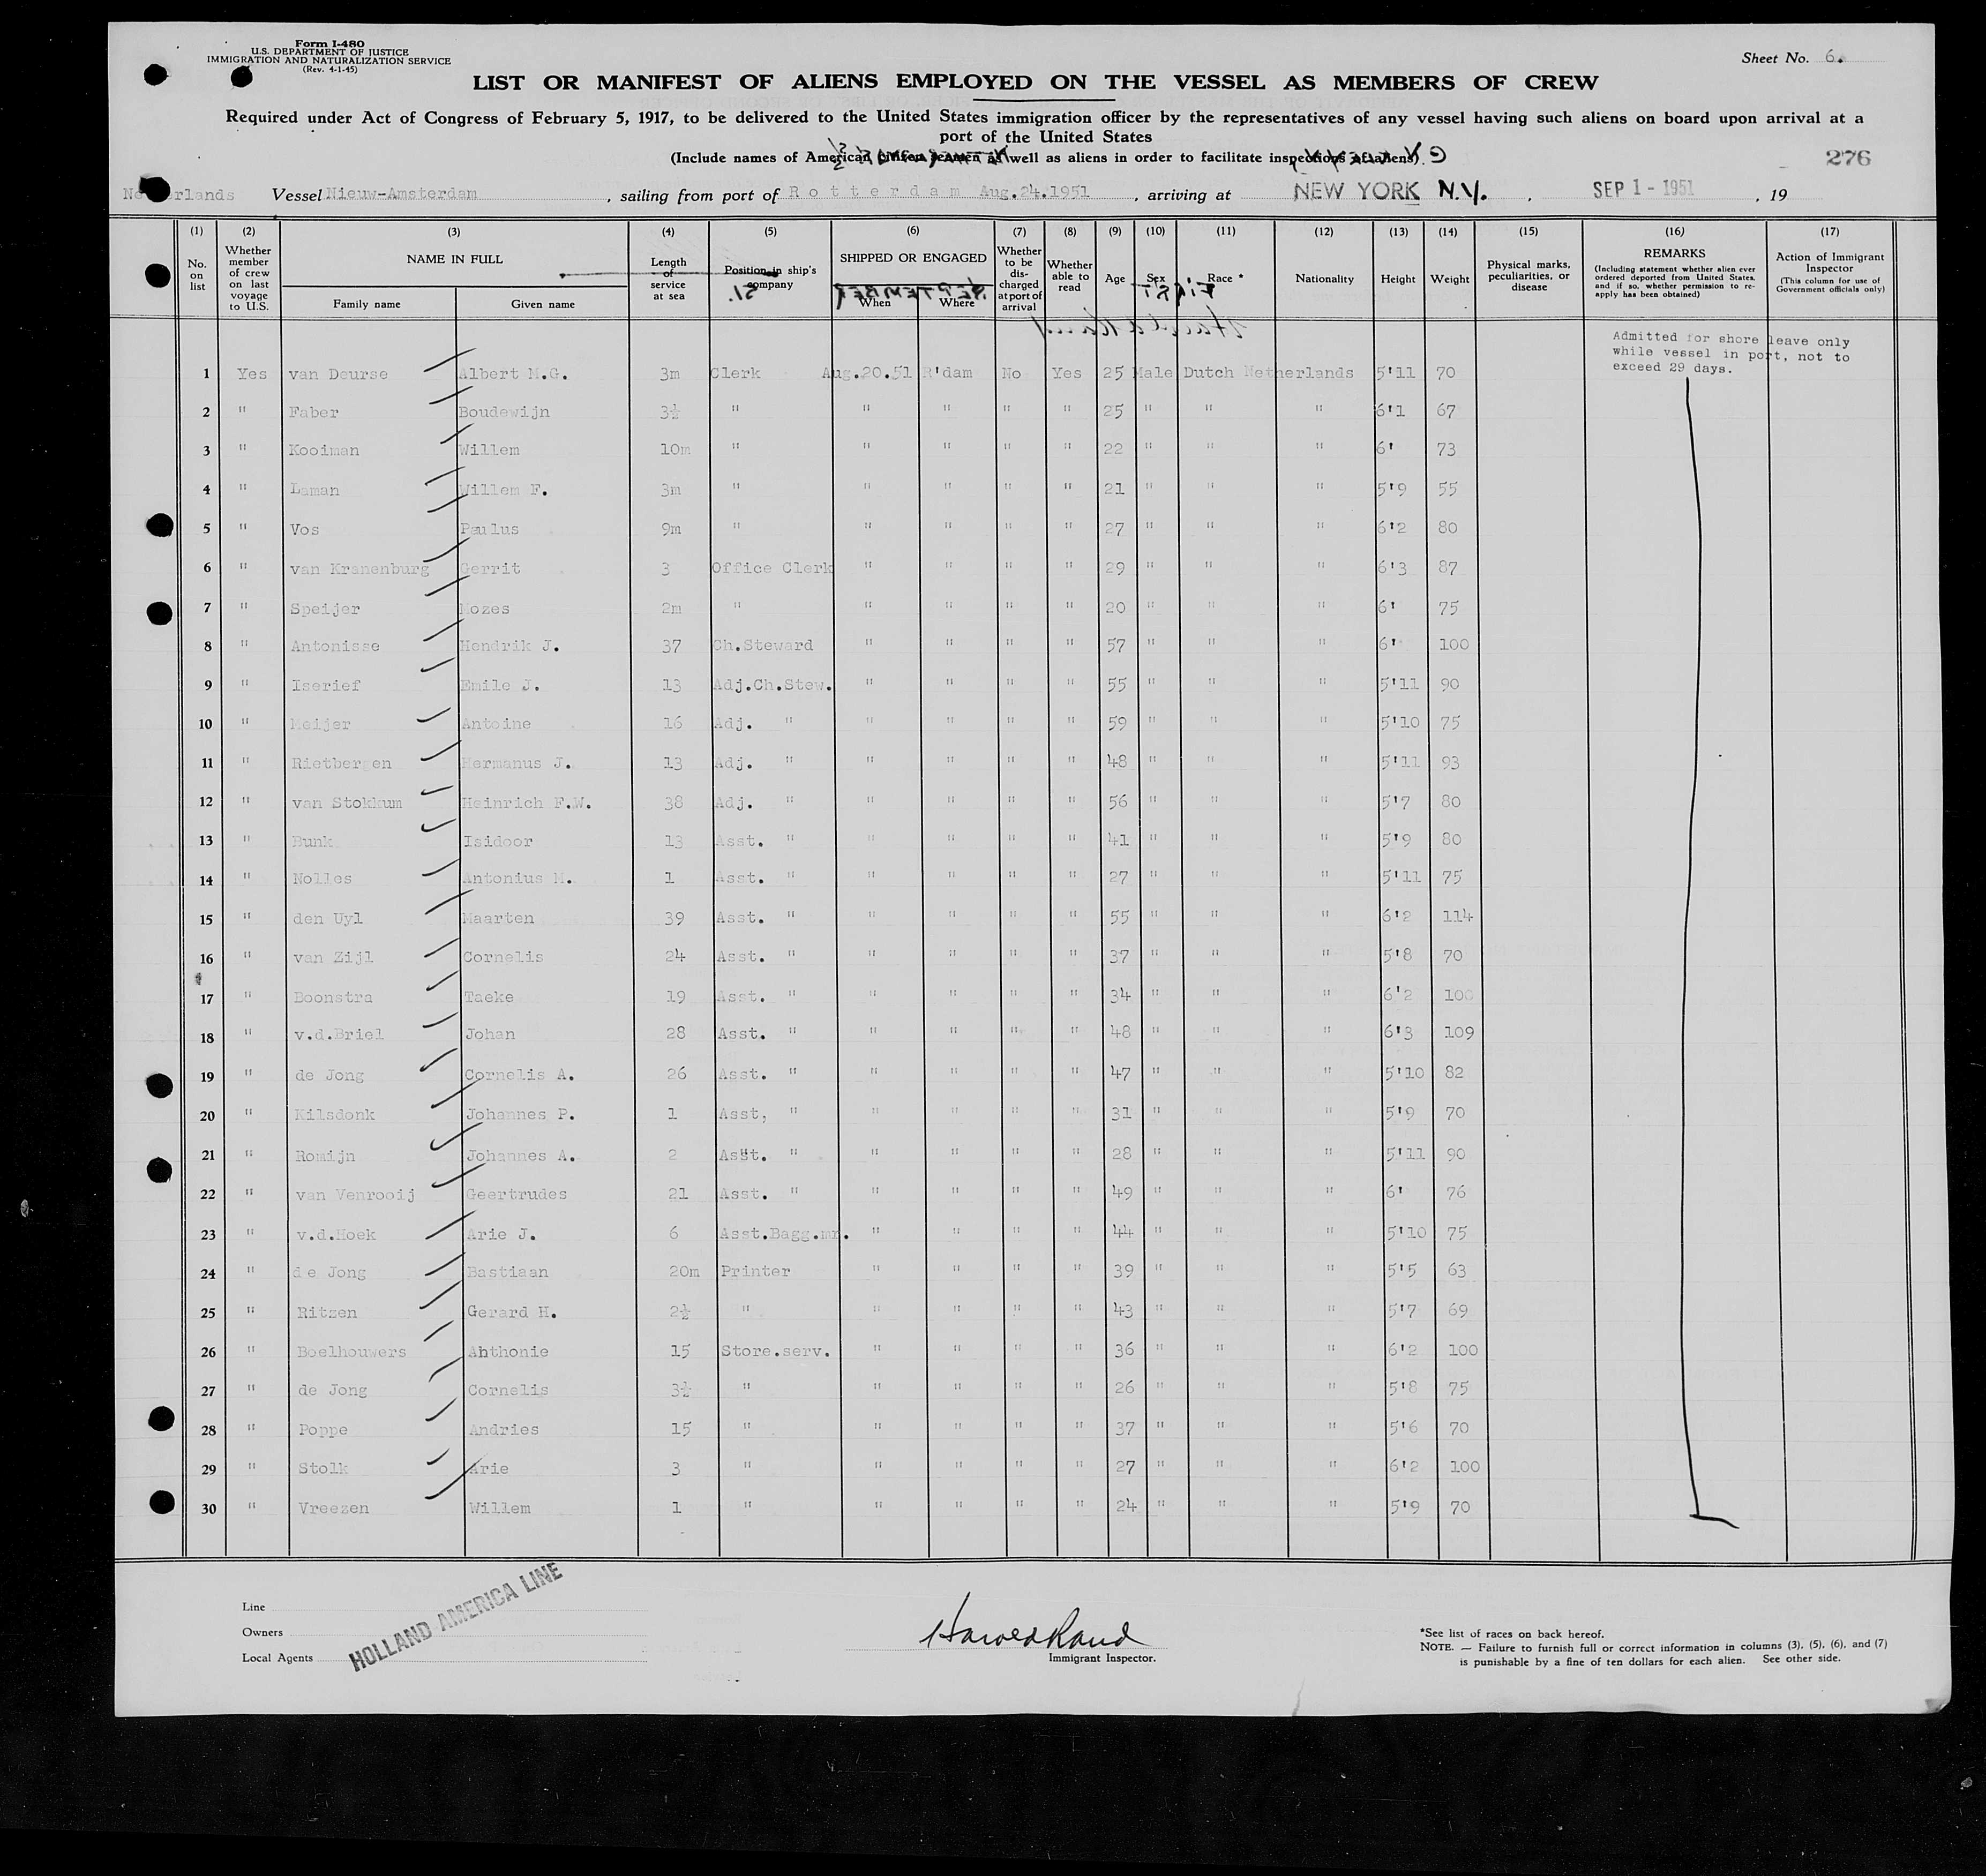 Form I-480
U.S. DEPARTMENT OF JUSTICE
IMMIGRATION AND NATURALIZATION SERVICE
(Rev. 4-1-45)
Sheet No. 6.
LIST OR MANIFEST OF ALIENS EMPLOYED ON THE VESSEL AS MEMBERS OF CREW
Required under Act of Congress of February 5, 1917, to be delivered to the United States immigration officer by the representatives of any vessel having such aliens on board upon arrival at a
port of the United States
(Include names of American citizen seamen as well as aliens in order to facilitate inspections of aliens)
276
Netherlands Vessel Nieuw-Amsterdam, sailing from port of Rotterdam Aug.24.1951, arriving at NEW YORK N.Y., SEP 1 - 1951, 19
(1) (2) (3) (4) (5) (6) (7) (8) (9) (10) (11) (12) (13) (14) (15) (16) (17)
No. on list
Whether member of crew on last voyage to U.S.
NAME IN FULL
Family name Given name
Length of service at sea
Position in ship's company
SHIPPED OR ENGAGED
When Where
Whether to be discharged at port of arrival
Whether able to read
Age
Sex
Race *
Nationality
Height
Weight
Physical marks, peculiarities, or disease
REMARKS
(Including statement whether alien ever ordered deported from United States, and if so, whether permission to re-apply has been obtained)
Action of Immigrant Inspector
(This column for use of Government officials only)
Admitted for shore leave only
while vessel in port, not to
exceed 29 days.
1 Yes van Deurse Albert M.G. 3m Clerk Aug.20.51 R'dam No Yes 25 Male Dutch Netherlands 5'11 70
2 " Faber Boudewijn 3½ " " " " " 25 " " " 6'1 67
3 " Kooiman Willem 10m " " " " " 22 " " " 6' 73
4 " Laman Willem F. 3m " " " " " 21 " " " 5'9 55
5 " Vos Paulus 9m " " " " " 27 " " " 6'2 80
6 " van Kranenburg Gerrit 3 Office Clerk " " " " 29 " " " 6'3 87
7 " Speijer Mozes 2m " " " " " 20 " " " 6' 75
8 " Antonisse Hendrik J. 37 Ch.Steward " " " " 57 " " " 6' 100
9 " Iserief Emile J. 13 Adj.Ch.Stew. " " " " 55 " " " 5'11 90
10 " Meijer Antoine 16 Adj. " " " " " 59 " " " 5'10 75
11 " Rietbergen Hermanus J. 13 Adj. " " " " " 48 " " " 5'11 93
12 " van Stokkum Heinrich F.W. 38 Adj. " " " " " 56 " " " 5'7 80
13 " Bunk Isidoor 13 Asst. " " " " " 41 " " " 5'9 80
14 " Nolles Antonius M. 1 Asst. " " " " " 27 " " " 5'11 75
15 " den Uyl Maarten 39 Asst. " " " " " 55 " " " 6'2 114
16 " van Zijl Cornelis 24 Asst. " " " " " 37 " " " 5'8 70
17 " Boonstra Taeke 19 Asst. " " " " " 34 " " " 6'2
18 " v.d.Briel Johan 28 Asst. " " " " " 48 " " " 6'3 109
19 " de Jong Cornelis A. 26 Asst. " " " " " 47 " " " 5'10 82
20 " Kilsdonk Johannes P. 1 Asst, " " " " " 31 " " " 5'9 70
21 " Romijn Johannes A. 2 Asst. " " " " " 28 " " " 5'11 90
22 " van Venrooij Geertrudes 21 Asst. " " " " " 49 " " " 6' 76
23 " v.d.Hoek Arie J. 6 Asst.Bagg.mr. " " " " 44 " " " 5'10 75
24 " de Jong Bastiaan 20m Printer " " " " 39 " " " 5'5 63
25 " Ritzen Gerard H. 2½ " " " " " 43 " " " 5'7 69
26 " Boelhouwers Ahthonie 15 Store.serv. " " " " 36 " " " 6'2 100
27 " de Jong Cornelis 3½ " " " " " 26 " " " 5'8 75
28 " Poppe Andries 15 " " " " " 37 " " " 5'6 70
29 " Stolk Arie 3 " " " " " 27 " " " 6'2 100
30 " Vreezen Willem 1 " " " " " 24 " " " 5'9 70
Line
Owners
Local Agents
HOLLAND AMERICA LINE
Harold Rand
Immigrant Inspector.
*See list of races on back hereof.
NOTE. — Failure to furnish full or correct information in columns (3), (5), (6), and (7)
is punishable by a fine of ten dollars for each alien. See other side.